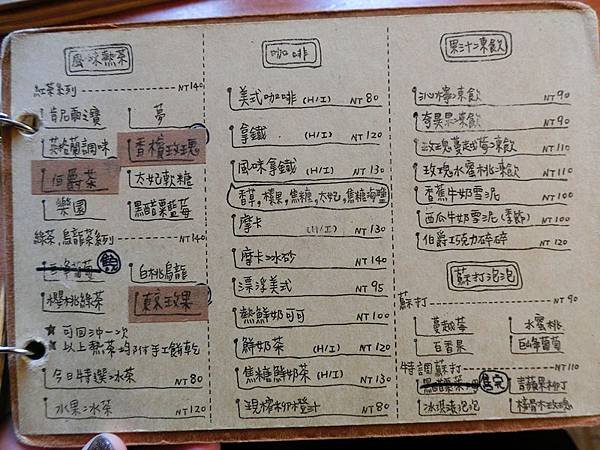 風味熱茶
紅茶系列 NT140
肯尼爾之寶 夢
英格蘭調味 香檳玫瑰
伯爵茶 太妃軟糖
樂園 黑醋栗藍莓
綠茶,烏龍茶系列 NT140
白桃烏龍
櫻桃綠茶 東京玫果
★可回沖一次
★以上熱茶均附手工餅乾
今日特選冰茶 NT80
水果冰茶 NT120
咖啡
美式咖啡 (H/I) NT80
拿鐵 (H/I) NT120
風味拿鐵 (H/I) NT130
香草,榛果,焦糖,太妃,焦糖海鹽
摩卡 (H/I) NT130
摩卡冰砂 NT140
漂浮美式 NT95
熱鮮奶可可 NT100
鮮奶茶 (H/I) NT120
焦糖鮮奶茶 (H/I) NT130
現榨柳橙汁 NT80
果汁凍飲
沁檸凍飲 NT90
奇異果凍飲 NT90
玫瑰蔓越莓凍飲 NT110
玫瑰水蜜桃凍飲 NT110
香蕉牛奶雪泥 NT100
西瓜牛奶雪泥(季節) NT100
伯爵巧克力碎碎 NT120
蘇打泡泡
蘇打 NT90
蔓越莓 水蜜桃
百香果 巨峰葡萄
特調蘇打 NT110
售完 青蘋果柳丁
冰淇淋泡泡 接骨木玫瑰